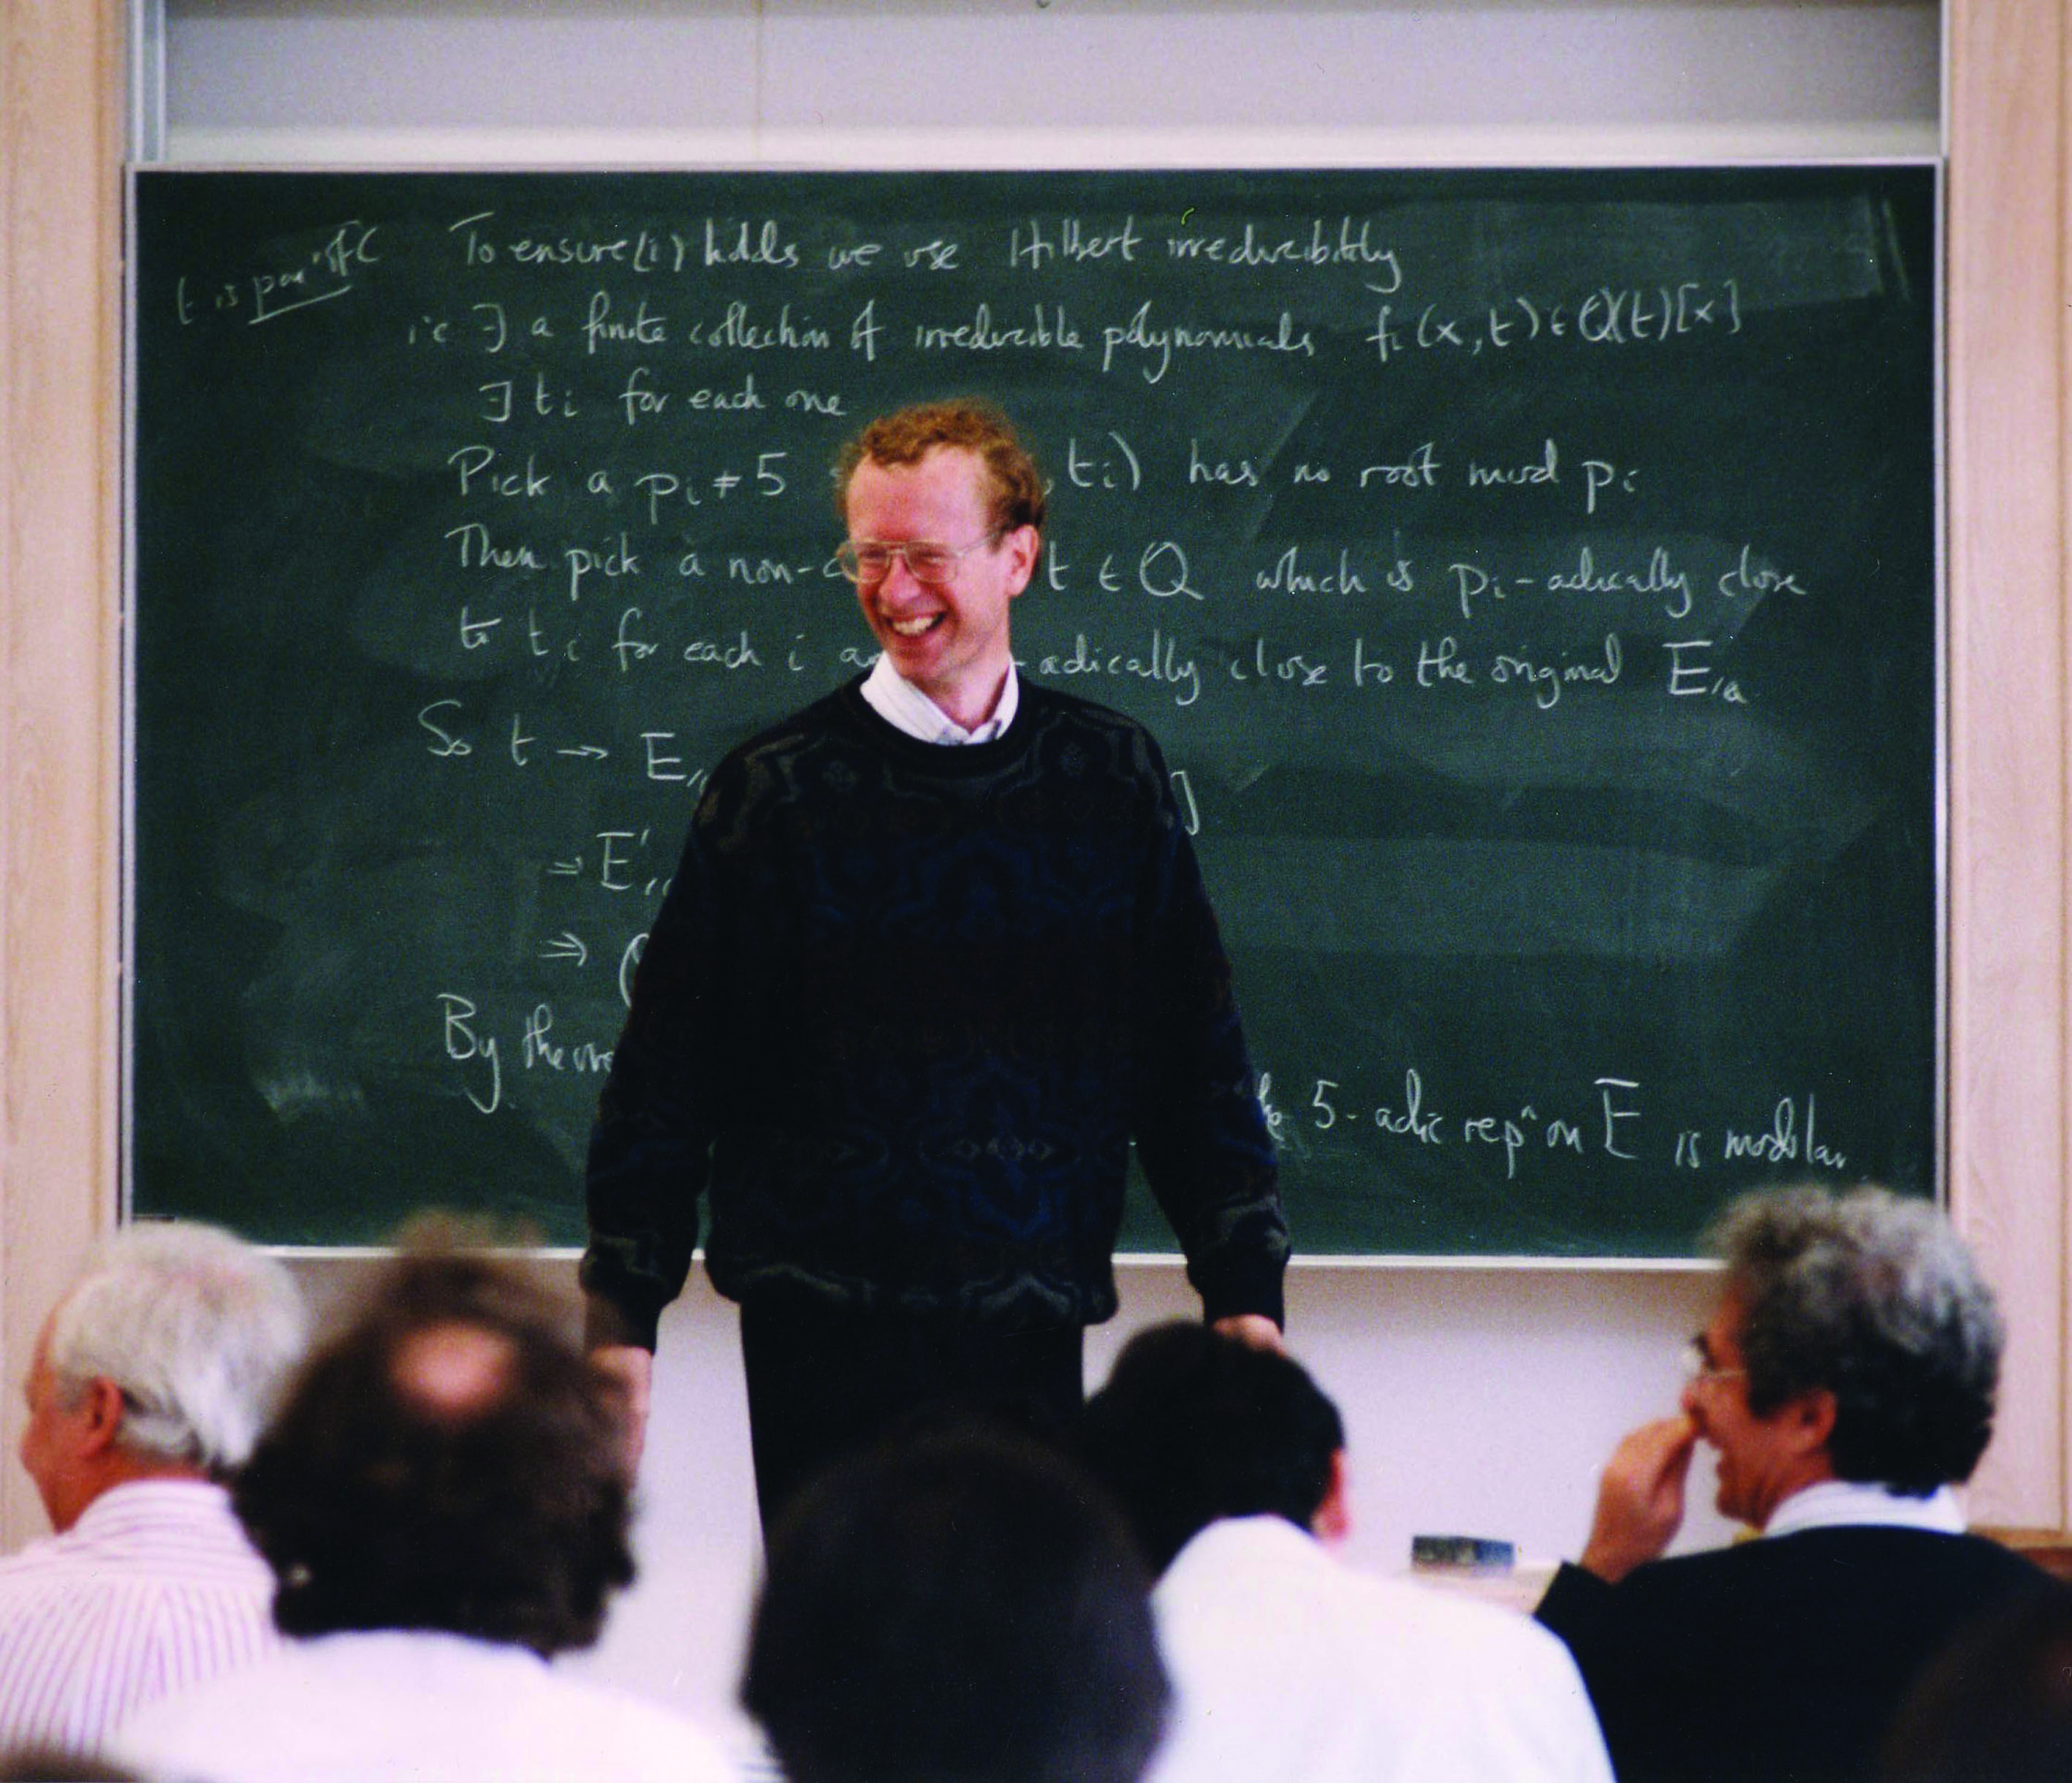 t is par' of C
To ensure (i) holds we use Hilbert irreducibility
ie ∃ a finite collection of irreducible polynomials fi(x,t) ∈ Q(t)[x]
∃ ti for each one
Pick a pi ≠ 5 , ti) has no root mod pi
Then pick a non- t ∈ Q which is pi-adically close
to ti for each i -adically close to the original E/Q
So t → E ]
⇒ E'
⇒
By 5-adic repⁿ on E is modular